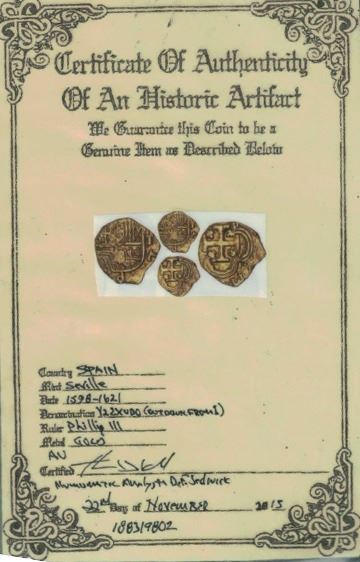 Certificate Of Authenticity
Of An Historic Artifact
We Guarantee this Coin to be a
Genuine Item as Described Below
Country SPAIN
Mint Seville
Date 1598-1621
Denomination
Ruler Phillip III
Metal GOLD
AU
Certified
Numismatic Analyst
22nd Day of November 2015
188319802